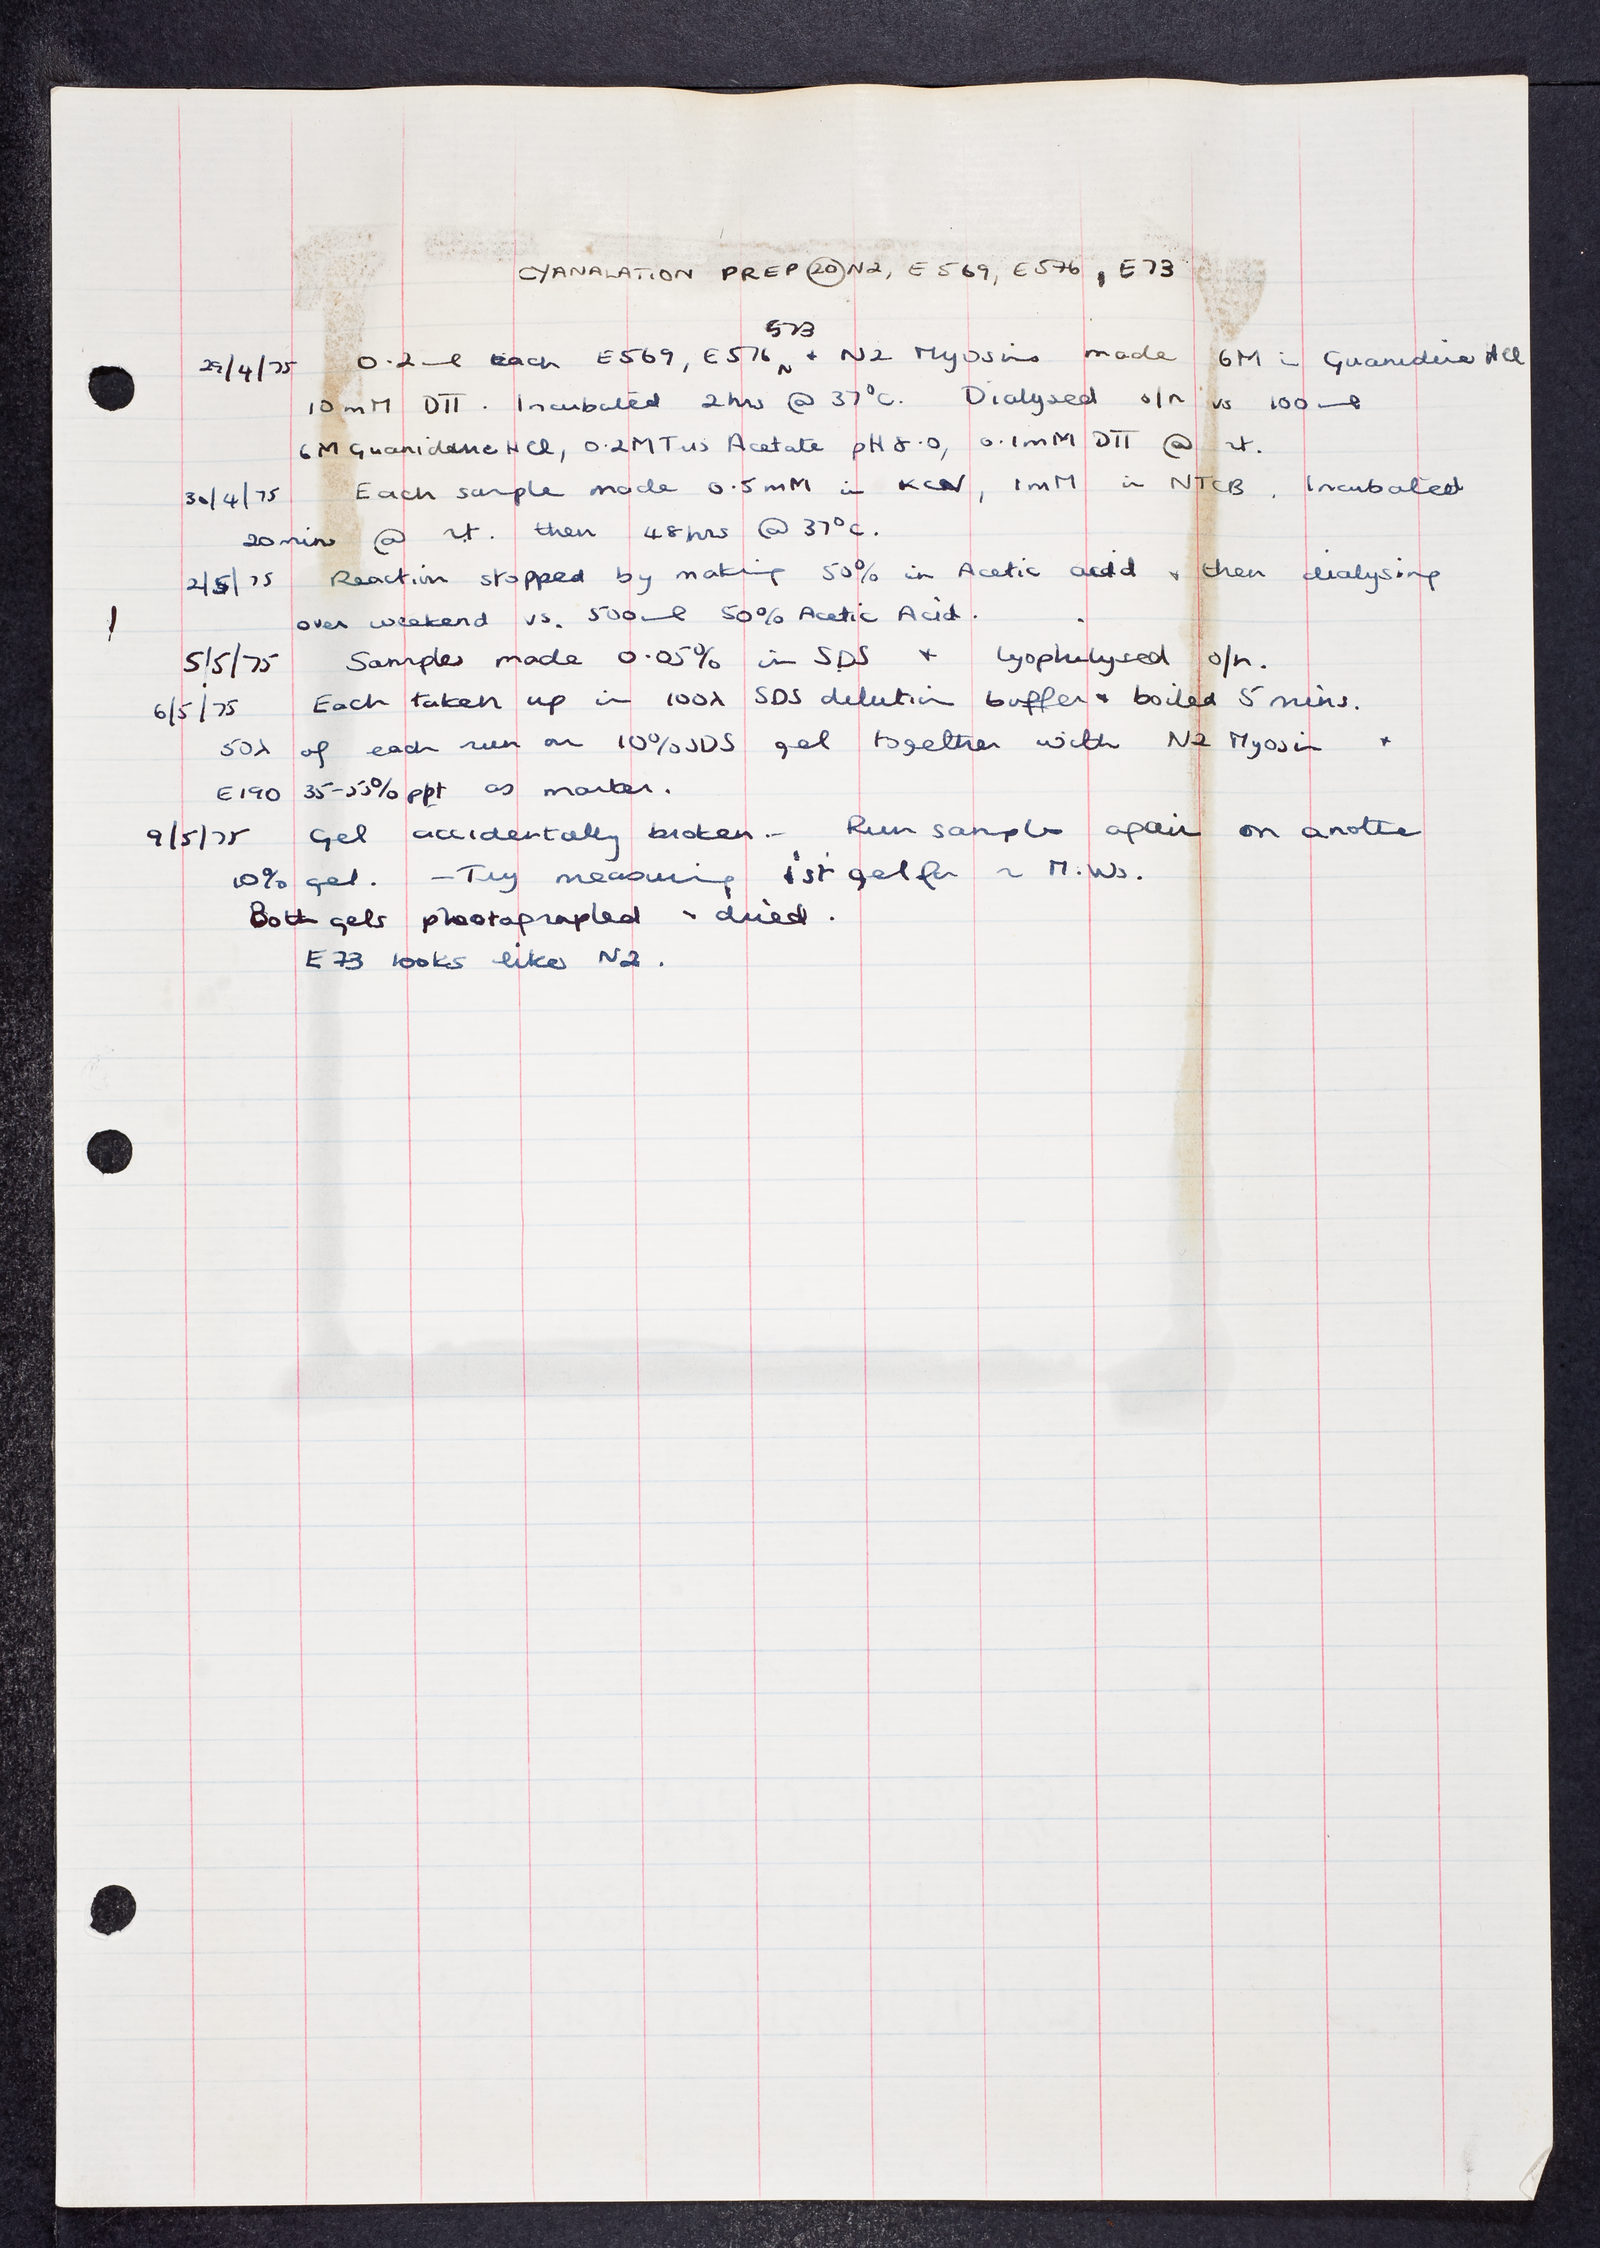 CYANALATION PREP 20 N2, E569, E576, E73
573
29/4/75 0.2ml each E569, E576 + N2 Myosins made 6M in Guanidine HCl
10mM DTT. Incubated 2hrs @ 37°C. Dialysed o/n vs 100ml
6M Guanidine HCl, 0.2M Tris Acetate pH 8.0, 0.1mM DTT @ rt.
30/4/75 Each sample made 0.5mM in KCN, 1mM in NTCB. Incubated
20mins @ rt. then 48hrs @ 37°C.
2/5/75 Reaction stopped by making 50% in Acetic acid + then dialysing
over weekend vs. 500ml 50% Acetic Acid.
5/5/75 Samples made 0.05% in SDS + lyophilysed o/n.
6/5/75 Each taken up in 100λ SDS dilution buffer + boiled 5 mins.
50λ of each run on 10% SDS gel together with N2 Myosin +
E190 35-55% ppt as marker.
9/5/75 Gel accidentally broken - Run samples again on another
10% gel. - Try measuring 1st gel for ~ M.Ws.
Both gels photographed + dried.
E73 looks like N2.